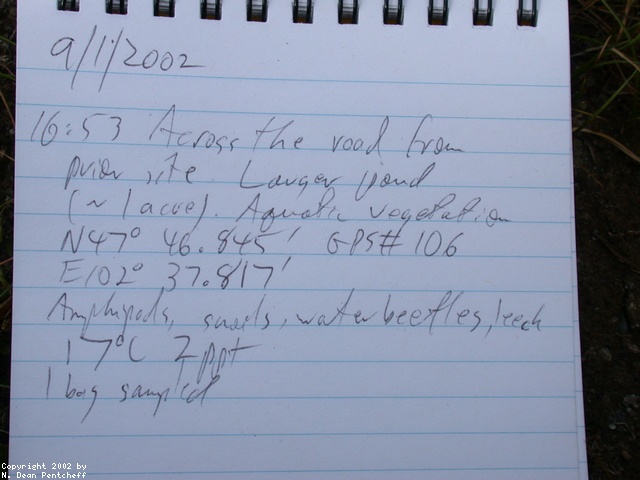 9/1/2002
16:53 Across the road from
prior site. Larger pond
(~1 acre). Aquatic vegetation
N47° 46.845' GPS# 106
E102° 37.817'
Amphipods, snails, water beetles, leech
17°C 2 ppt
1 bag sampled
Copyright 2002 by
N. Dean Pentcheff